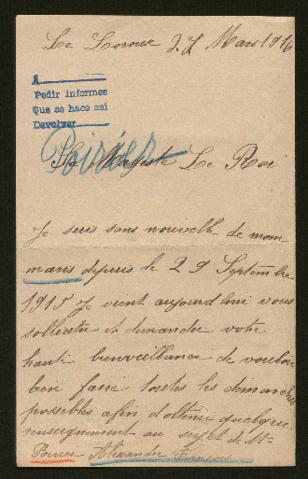 Le Lorme 27 Mars 1916
A
Pedir informes
Que se hace así
Devolver
Poirier
Sa Majesté Le Roi
Je suis sans nouvelle de mon
maris depuis le 29 Septembre
1915 Je vient aujourd'hui vous
solliciter et demander votre
haute bienveillance de vouloir
bien faire toutes les demarches
possebles afin d'obtenir quelque
renseignement au sujet de Mr
Poirier Alexandre François